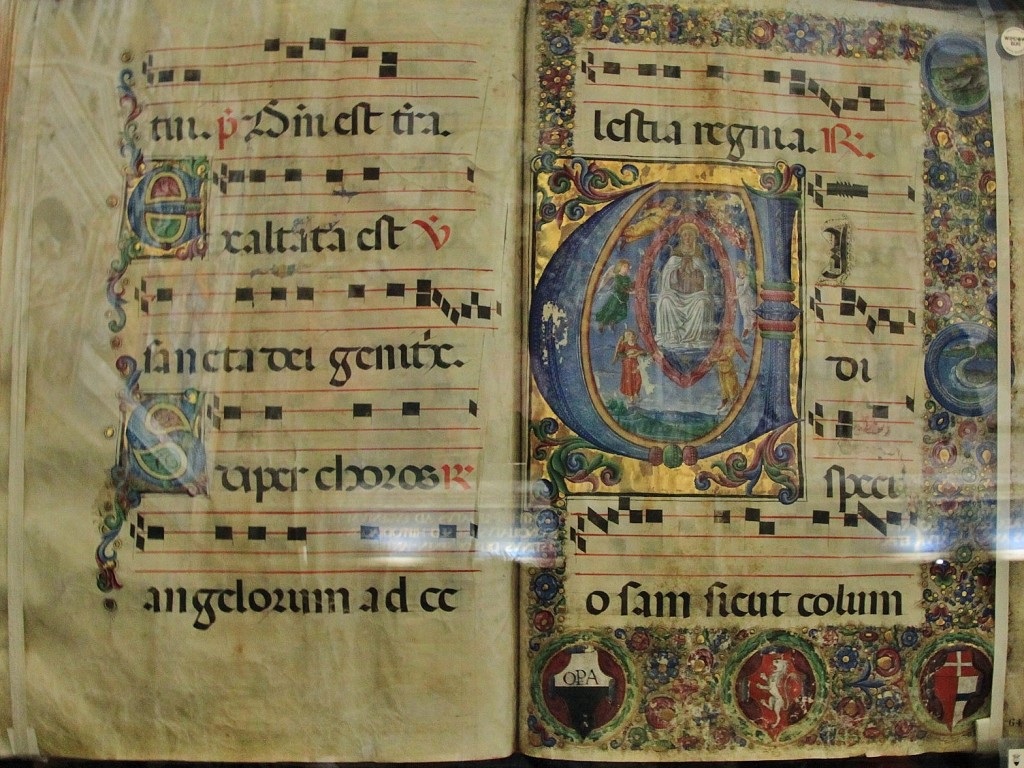 tui. p̄ Dn̄i est tr̄a.
Exaltata est V̄
sancta dei genitx̄.
Super choros R̄
angelorum ad ce
lestia regnia. R̄.
VI
di
speci
osam sicut colum
OPA